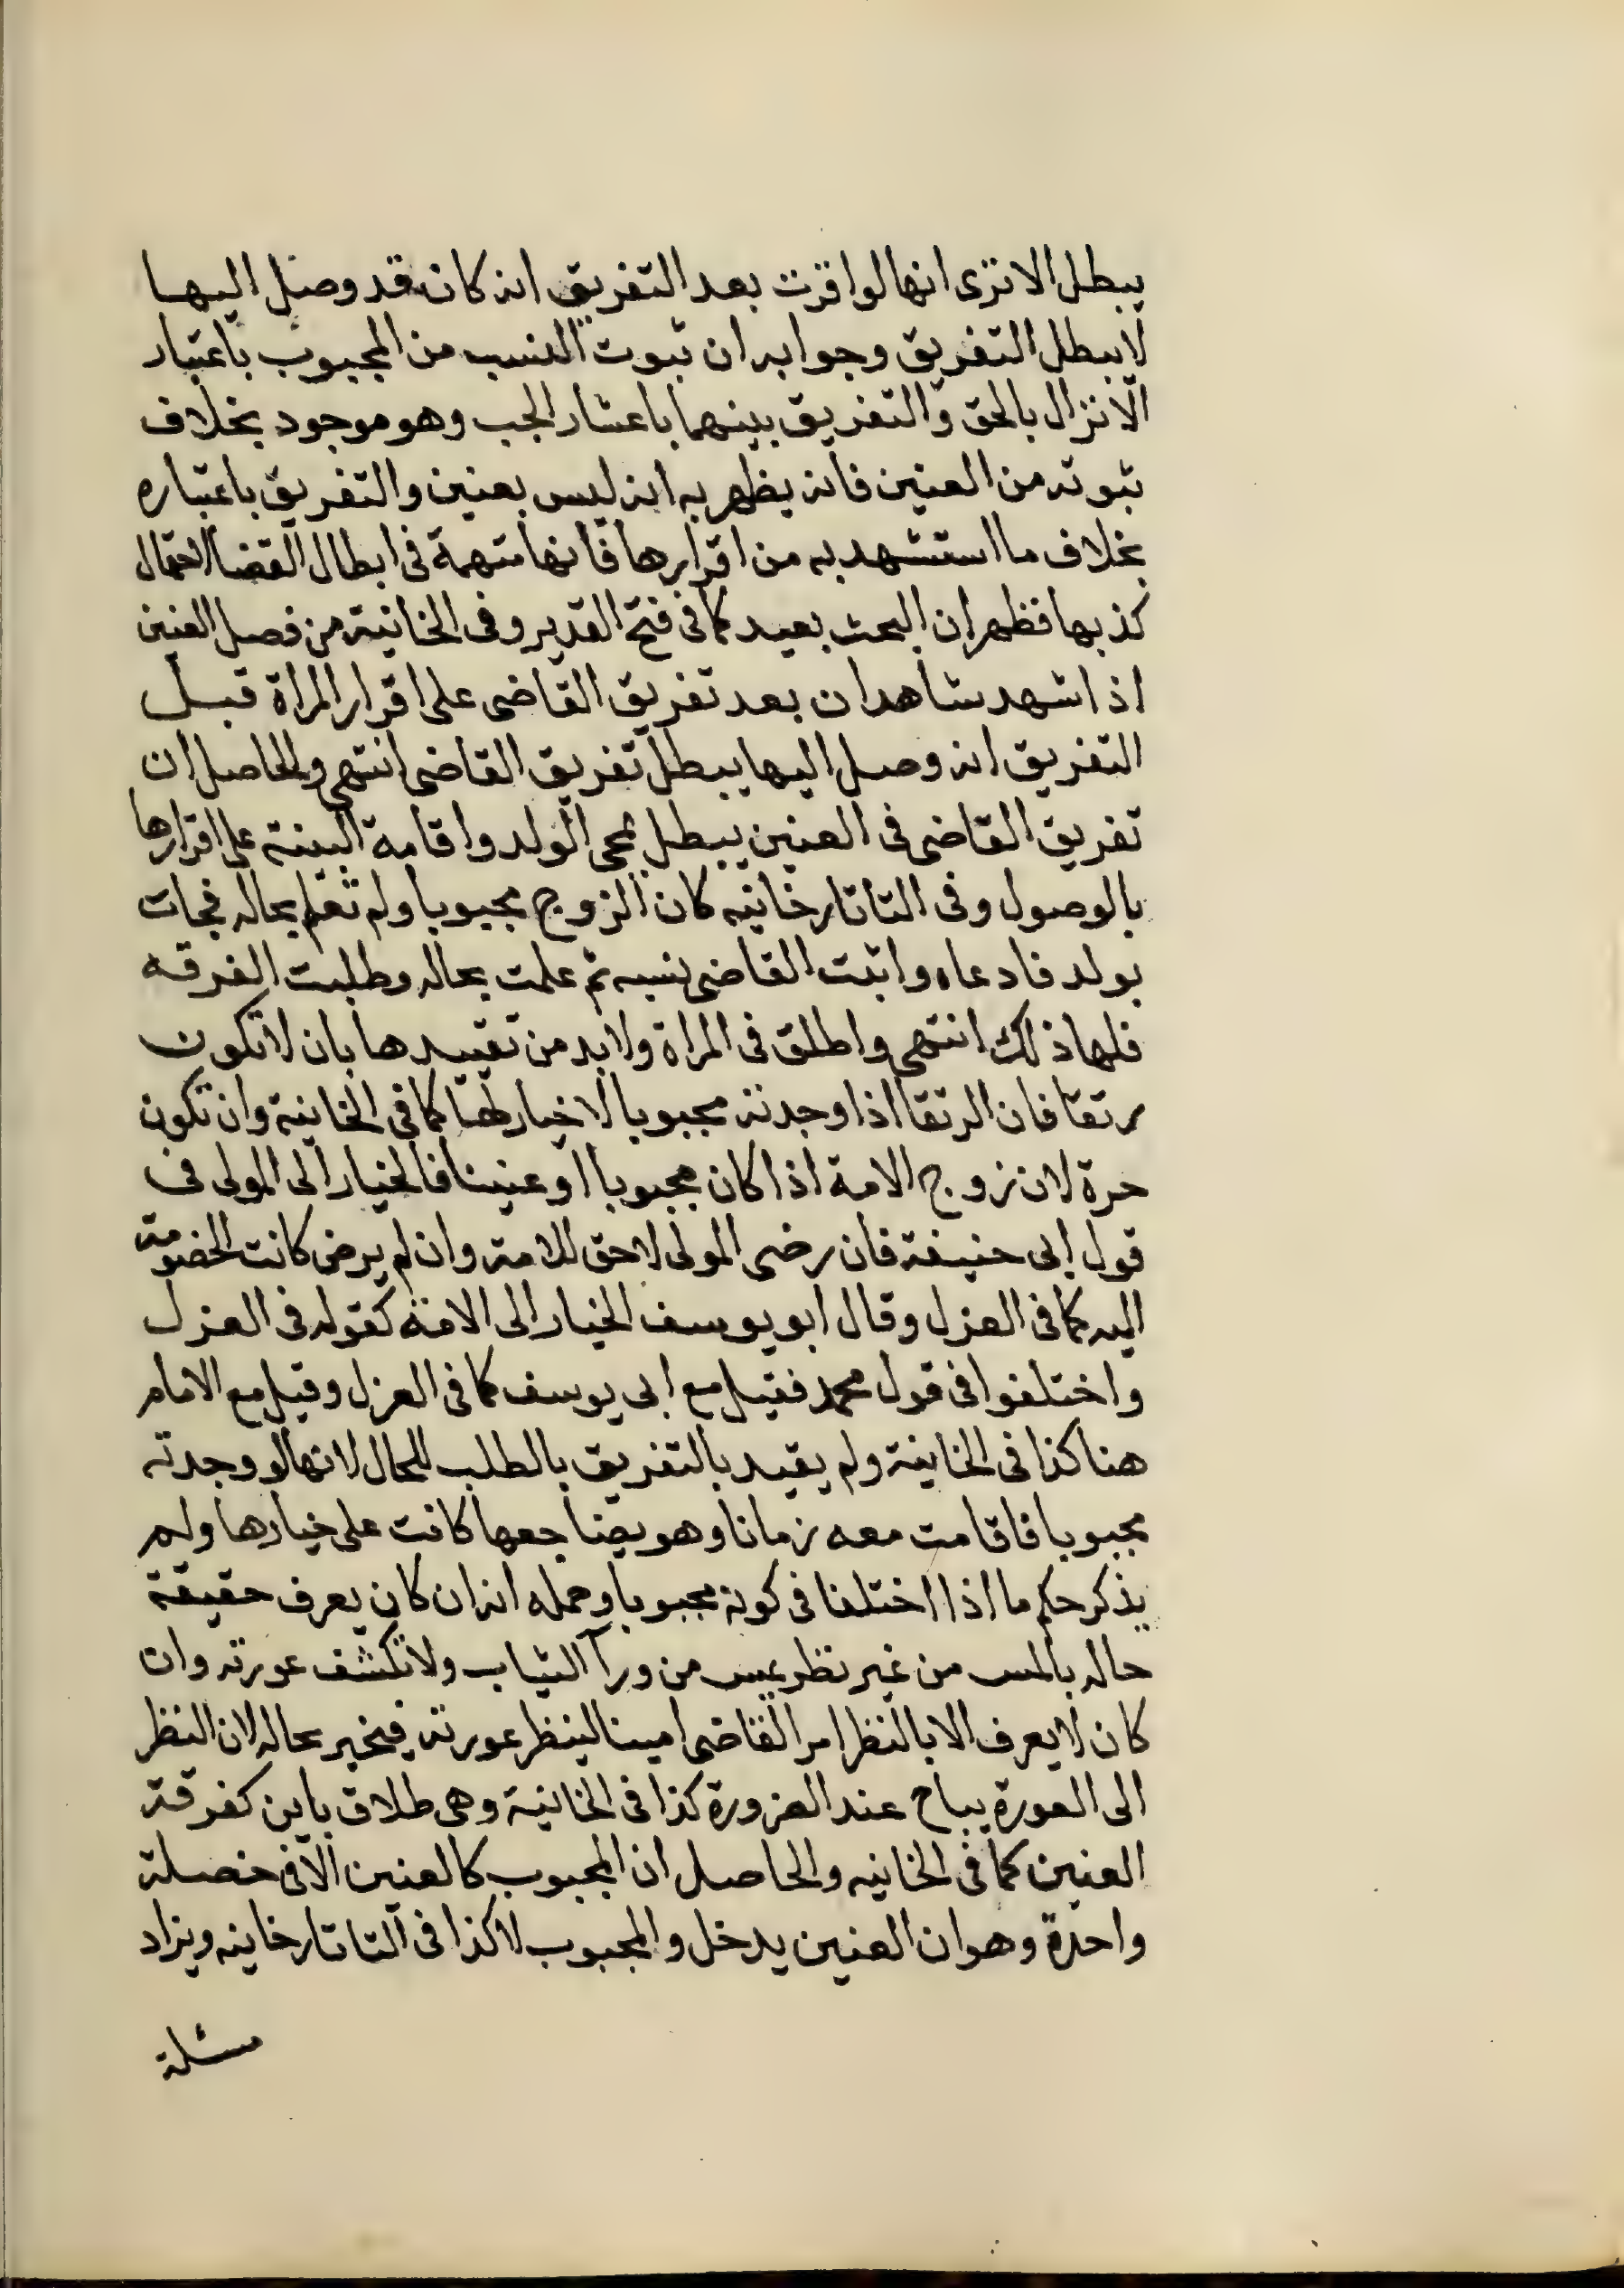 يبطل الا ترى انها لو اقرت بعد التفريق انه كان قد وصل اليها
لا يبطل التفريق وجوابه ان ثبوت النسب من المجبوب باعتبار
الانزال بالحق والتفريق بينهما باعتبار الجب وهو موجود بخلاف
ثبوته من العنين فانه يظهر به انه ليس بعنين والتفريق باعتباره
بخلاف ما استشهد به من اقرارها فانها متهمة فى ابطال القضا لاحتمال
كذبها فظهر ان البحث بعيد كما فى فتح القدير وفى الخانية من فصل العنين
اذا شهد شاهدان بعد تفريق القاضى على اقرار المراة قبل
التفريق انه وصل اليها يبطل تفريق القاضى انتهى والحاصل ان
تفريق القاضى فى العنين يبطل بمجى الولد واقامة البينة على اقرارها
بالوصول وفى التاتارخانيه كان الزوج مجبوبا ولم تعلم بحاله فجات
بولد فادعاه واثبت القاضى نسبه ثم علمت بحاله وطلبت الفرقه
فلها ذلك انتهى واطلق فى المراة ولابد من تقييدها بان لا تكون
رتقا فان الرتقا اذا وجدته مجبوبا لا خيار لها كما فى الخانية وان تكون
حرة لان زوج الامة اذا كان مجبوبا او عنينا فالخيار الى المولى فى
قول ابى حنيفة فان رضى المولى لا حق للامة وان لم يرض كانت الخصومة
اليه كما فى العزل وقال ابو يوسف الخيار الى الامة كقوله فى العزل
واختلفوا فى قول محمد فقيل مع ابى يوسف كما فى العزل وقيل مع الامام
هنا كذا فى الخانية ولم يقيد بالتفريق بالطلب للحال لانها لو وجدته
مجبوبا فاقامت معه زمانا وهو يضاجعها كانت على خيارها ولم
يذكر حكم ما اذا اختلفا فى كونه مجبوبا وحمله انه ان كان يعرف حقيقة
حاله بالمس من غير نظر يمس من ورآ الثياب ولا تكشف عورته وان
كان لا يعرف الا بالنظر امر القاضى امينا لينظر عورته فيخبر بحاله لان النظر
الى العورة يباح عند الضرورة كذا فى الخانية وهى طلاق باين كفرقة
العنين كما فى الخانيه والحاصل ان المجبوب كالعنين الا فى خصلة
واحدة وهو ان العنين يدخل والمجبوب لا كذا فى التاتارخانيه ويزاد
مسئلة